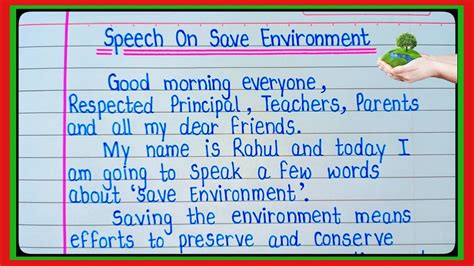 Speech On Save Environment
Good morning everyone,
Respected Principal, Teachers, Parents
and all my dear friends.
My name is Rahul and today I
am going to speak a few words
about 'Save Environment'.
Saving the environment means
efforts to preserve and conserve